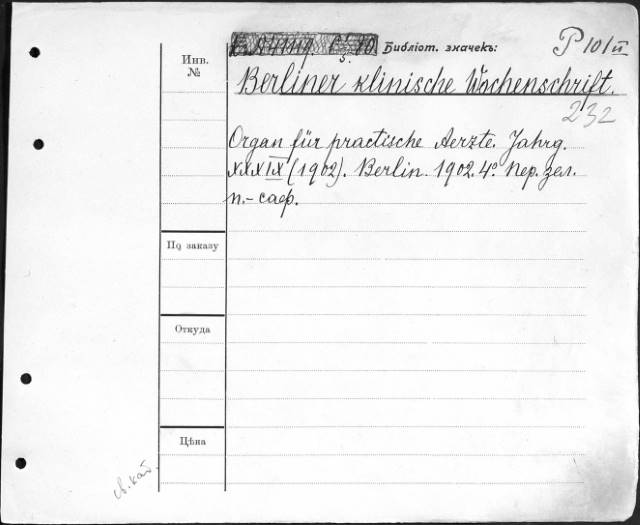 Библіот. значекъ: P 101/II
Инв. №
Berliner klinische Wochenschrift.
232
Organ für practische Aerzte. Jahrg.
XXXIX (1902). Berlin. 1902. 4º. Пер. зел.
п.-саф.
По заказу
Откуда
Цѣна
св. кат.